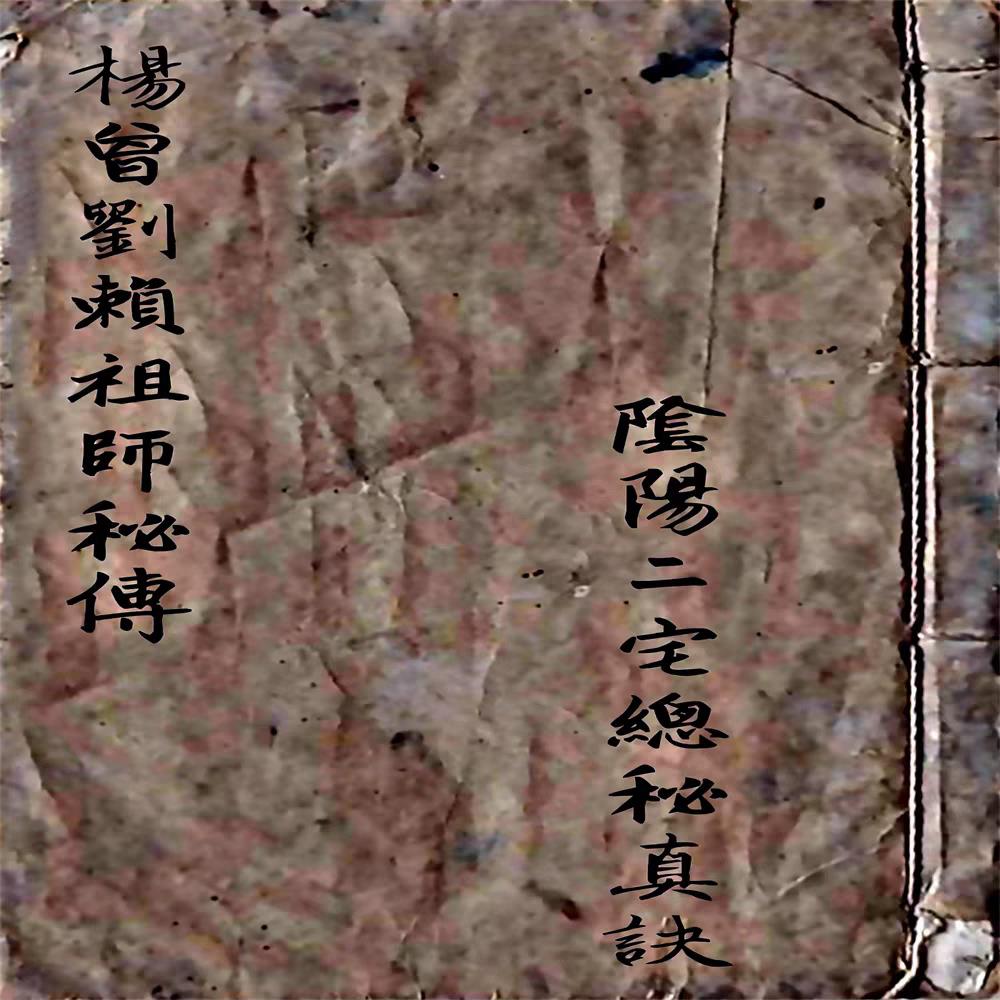 陰陽二宅總秘真訣
楊曾劉賴祖師秘傳